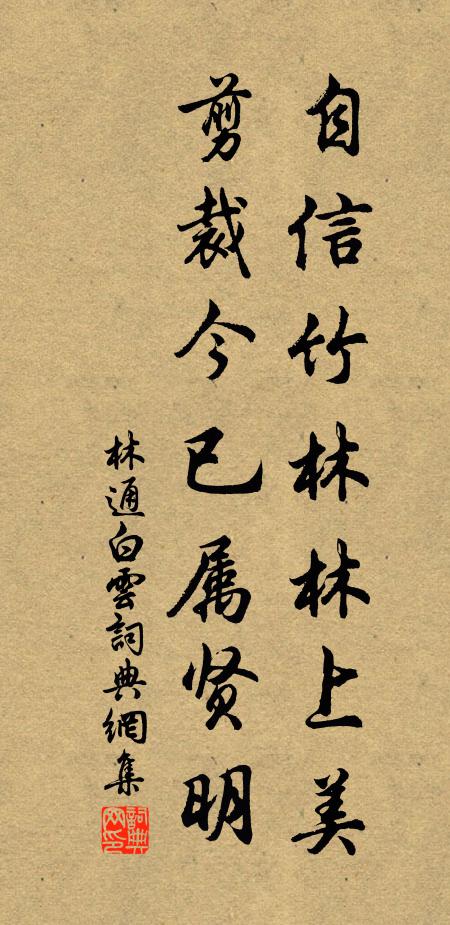 自信竹林林上美
剪裁今已属贤明
林通白雲詞典網集
詞典网印